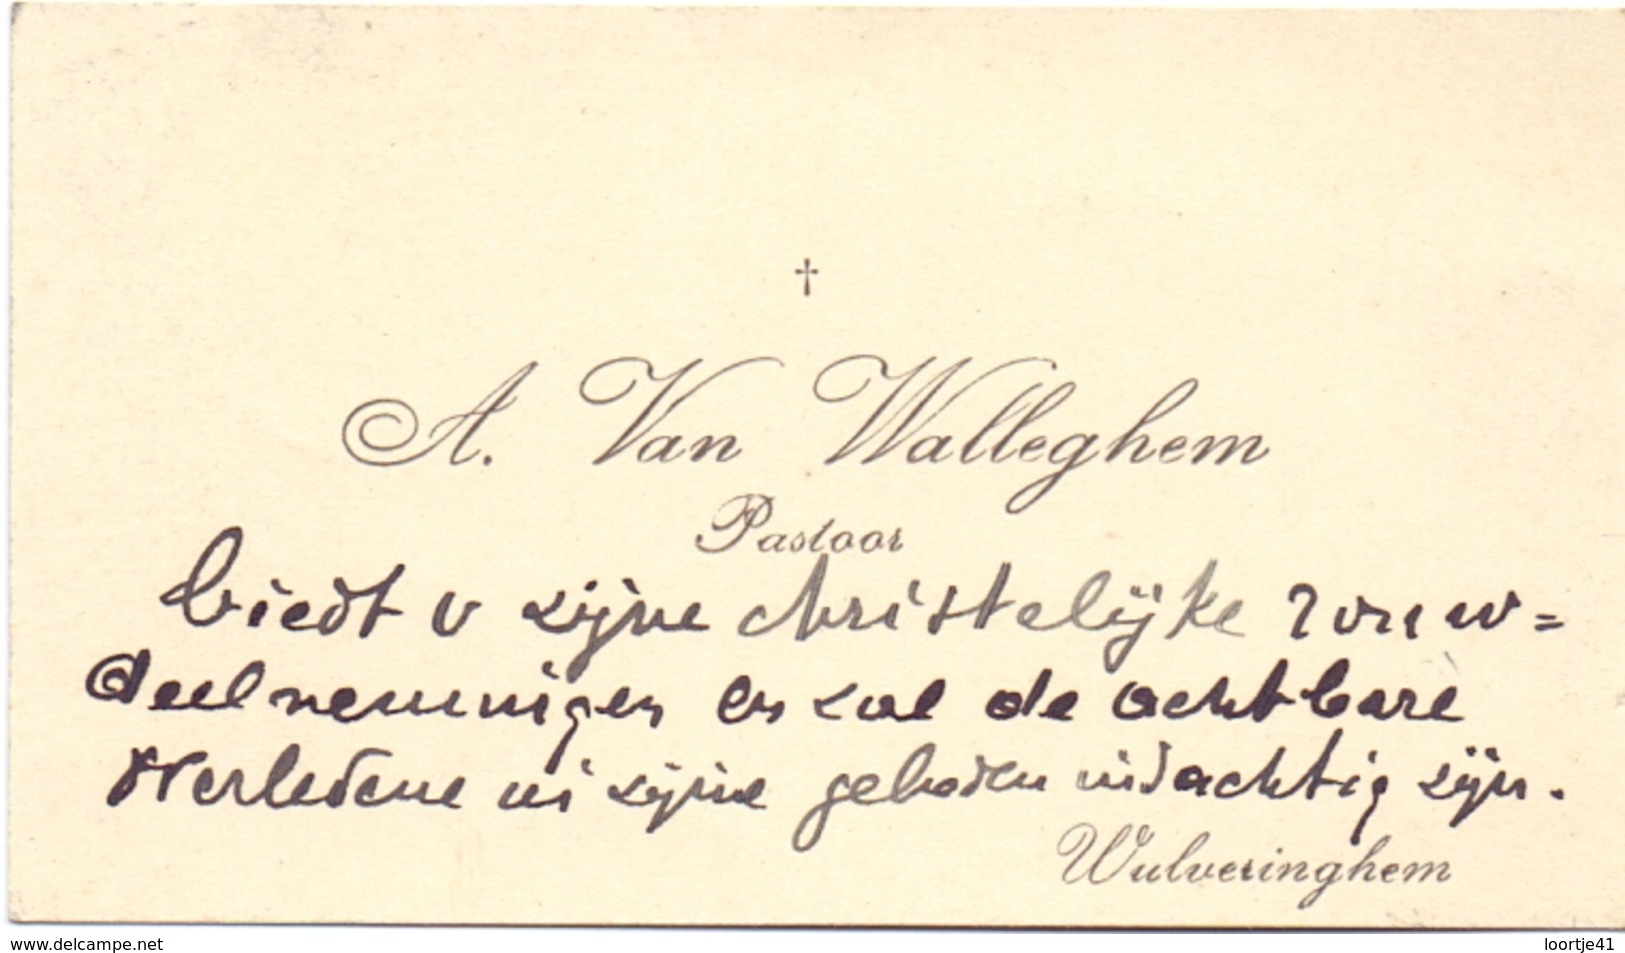 †
A. Van Walleghem
Pastoor
biedt U zijne christelijke rouw=
deelnemingen en zal de achtbare
Overledene in zijne gebeden indachtig zijn.
Wulveringhem
www.delcampe.net
loortje41